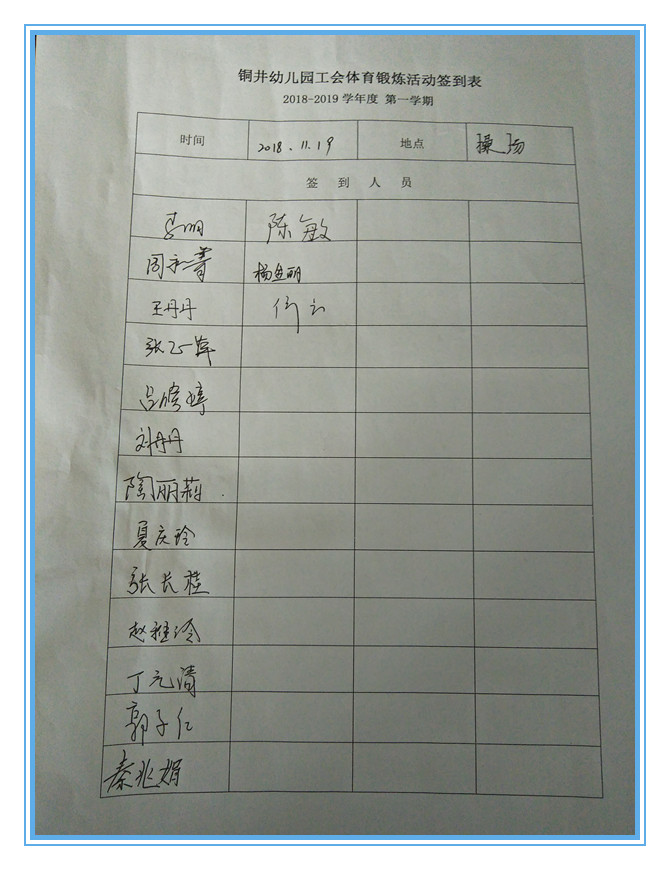 铜井幼儿园工会体育锻炼活动签到表
2018-2019 学年度 第一学期
时间 2018.11.19 地点 操场
签 到 人 员
李明 陈敏
杨冬丽
王丹丹
吕修婷
刘丹丹
陶丽莉
夏庆玲
张长桂
赵雅玲
丁元清
郭子仁
秦兆娟